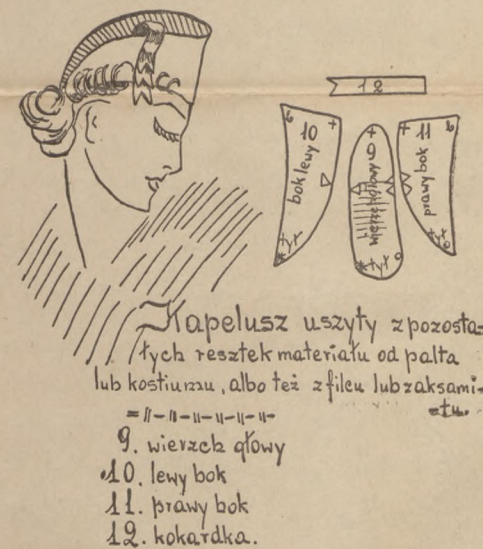 12
10
bok lewy
9
wierzch głowy
11
prawy bok
Kapelusz uszyty z pozosta=
łych resztek materiału od palta
lub kostiumu, albo też z filcu lub z aksami=
=tu.
9. wierzch głowy
10. lewy bok
11. prawy bok
12. kokardka.